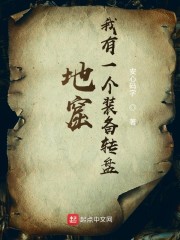 地窟
我有一个装备转盘
著
起点中文网